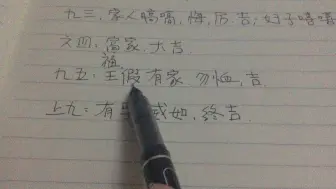 九三，家人嗃嗃，悔，厉吉；妇子嘻嘻
六四：富家，大吉
福
九五：王假有家，勿恤，吉．
上九：有 威如，终吉．